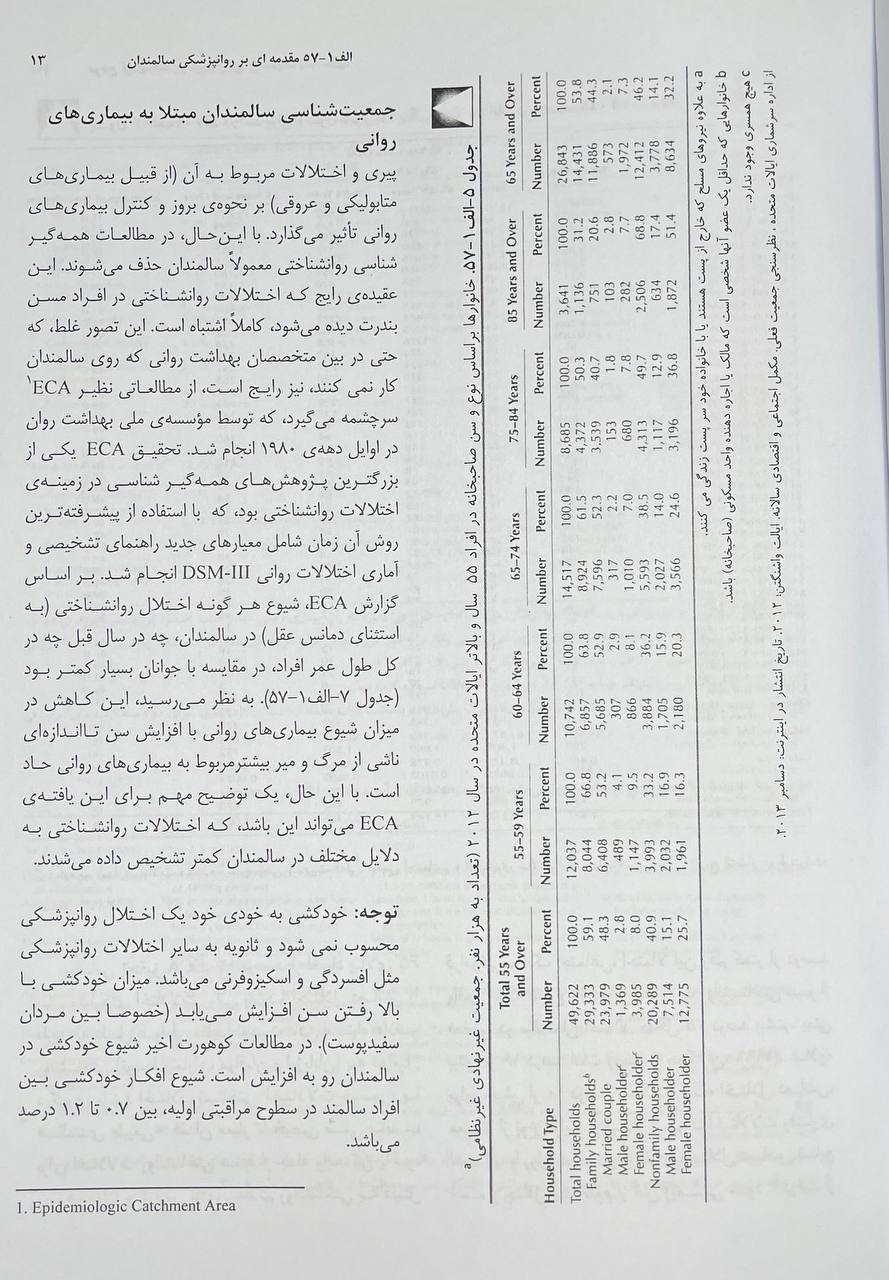 الف۱-۵۷ مقدمه ای بر روانپزشکی سالمندان ۱۳
جمعیت‌شناسی سالمندان مبتلا به بیماری‌های
روانی
پیری و اختلالات مربوط به آن (از قبیل بیماری‌های
متابولیکی و عروقی) بر نحوه‌ی بروز و کنترل بیماری‌های
روانی تأثیر می‌گذارد. با این‌حال، در مطالعات همه‌گیر
شناسی روانشناختی معمولاً سالمندان حذف می‌شوند. این
عقیده‌ی رایج که اختلالات روانشناختی در افراد مسن
بندرت دیده می‌شود، کاملاً اشتباه است. این تصور غلط، که
حتی در بین متخصصان بهداشت روانی که روی سالمندان
کار نمی کنند، نیز رایج است، از مطالعاتی نظیر ECA۱
سرچشمه می‌گیرد، که توسط مؤسسه‌ی ملی بهداشت روان
در اوایل دهه‌ی ۱۹۸۰ انجام شد. تحقیق ECA یکی از
بزرگترین پژوهش‌های همه‌گیر شناسی در زمینه‌ی
اختلالات روانشناختی بود، که با استفاده از پیشرفته‌ترین
روش آن زمان شامل معیارهای جدید راهنمای تشخیصی و
آماری اختلالات روانی DSM-III انجام شد. بر اساس
گزارش ECA، شیوع هر گونه اختلال روانشناختی (به
استثنای دمانس عقل) در سالمندان، چه در سال قبل چه در
کل طول عمر افراد، در مقایسه با جوانان بسیار کمتر بود
(جدول ۷-الف۱-۵۷). به نظر می‌رسید، این کاهش در
میزان شیوع بیماری‌های روانی با افزایش سن تااندازه‌ای
ناشی از مرگ و میر بیشترمربوط به بیماری‌های روانی حاد
است. با این حال، یک توضیح مهم برای این یافته‌ی
ECA می‌تواند این باشد، که اختلالات روانشناختی به
دلایل مختلف در سالمندان کمتر تشخیص داده می‌شدند.
توجه: خودکشی به خودی خود یک اختلال روانپزشکی
محسوب نمی شود و ثانویه به سایر اختلالات روانپزشکی
مثل افسردگی و اسکیزوفرنی می‌باشد. میزان خودکشی با
بالا رفتن سن افزایش می‌یابد (خصوصا بین مردان
سفیدپوست). در مطالعات کوهورت اخیر شیوع خودکشی در
سالمندان رو به افزایش است. شیوع افکار خودکشی بین
افراد سالمند در سطوح مراقبتی اولیه، بین ۰.۷ تا ۱.۲ درصد
می‌باشد.
1. Epidemiologic Catchment Area
جدول ۵-الف۱-۵۷. خانوارها براساس نوع و سن صاحبخانه در افراد ۵۵ سال و بالاتر ایالات متحده در سال ۲۰۱۲ (تعداد به هزار نفر. جمعیت غیر نهادی غیر نظامی)a
Total 55 Years and Over 55–59 Years 60–64 Years 65–74 Years 75–84 Years 85 Years and Over 65 Years and Over
Household Type Number Percent Number Percent Number Percent Number Percent Number Percent Number Percent Number Percent
Total households 49,622 100.0 12,037 100.0 10,742 100.0 14,517 100.0 8,685 100.0 3,641 100.0 26,843 100.0
Family householdsb 29,333 59.1 8,044 66.8 6,857 63.8 8,924 61.5 4,372 50.3 1,136 31.2 14,431 53.8
Married couple 23,979 48.3 6,408 53.2 5,685 52.9 7,596 52.3 3,539 40.7 751 20.6 11,886 44.3
Male householderc 1,369 2.8 489 4.1 307 2.9 317 2.2 153 1.8 103 2.8 573 2.1
Female householderc 3,985 8.0 1,147 9.5 866 8.1 1,010 7.0 680 7.8 282 7.7 1,972 7.3
Nonfamily households 20,289 40.9 3,993 33.2 3,884 36.2 5,593 38.5 4,313 49.7 2,506 68.8 12,412 46.2
Male householder 7,514 15.1 2,032 16.9 1,705 15.9 2,027 14.0 1,117 12.9 634 17.4 3,778 14.1
Female householder 12,775 25.7 1,961 16.3 2,180 20.3 3,566 24.6 3,196 36.8 1,872 51.4 8,634 32.2
a به علاوه نیروهای مسلح که خارج از پست هستند یا با خانواده خود سر پست زندگی می کنند.
b خانوارهایی که حداقل یک عضو آنها شخصی است که مالک یا اجاره دهنده واحد مسکونی (صاحبخانه) باشد.
c هیچ همسری وجود ندارد.
از اداره سرشماری ایالات متحده ، نظرسنجی جمعیت فعلی، مکمل اجتماعی و اقتصادی سالانه. ایالت واشنگتن: ۲۰۱۲. تاریخ انتشار در اینترنت: دسامبر ۲۰۱۳.